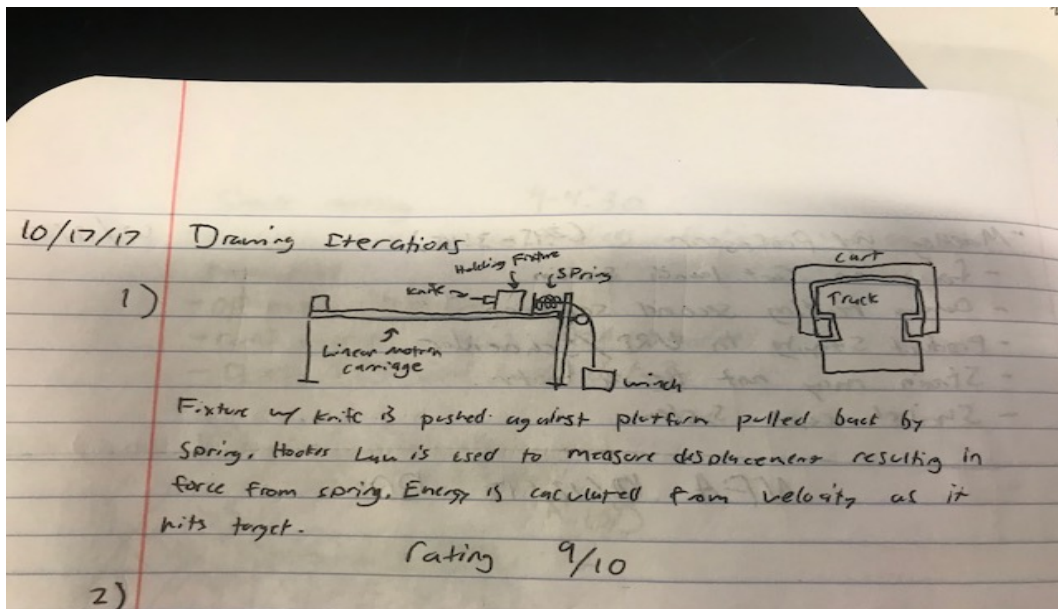 10/17/17 Drawing Iterations
1)
Holding Fixture
Spring
Knife
Linear motion
carriage
winch
Cart
Truck
Fixture w/ knife is pushed against platform pulled back by
Spring. Hookes Law is used to measure displacement resulting in
force from spring. Energy is caculated from velocity as it
hits target.
rating 9/10
2)